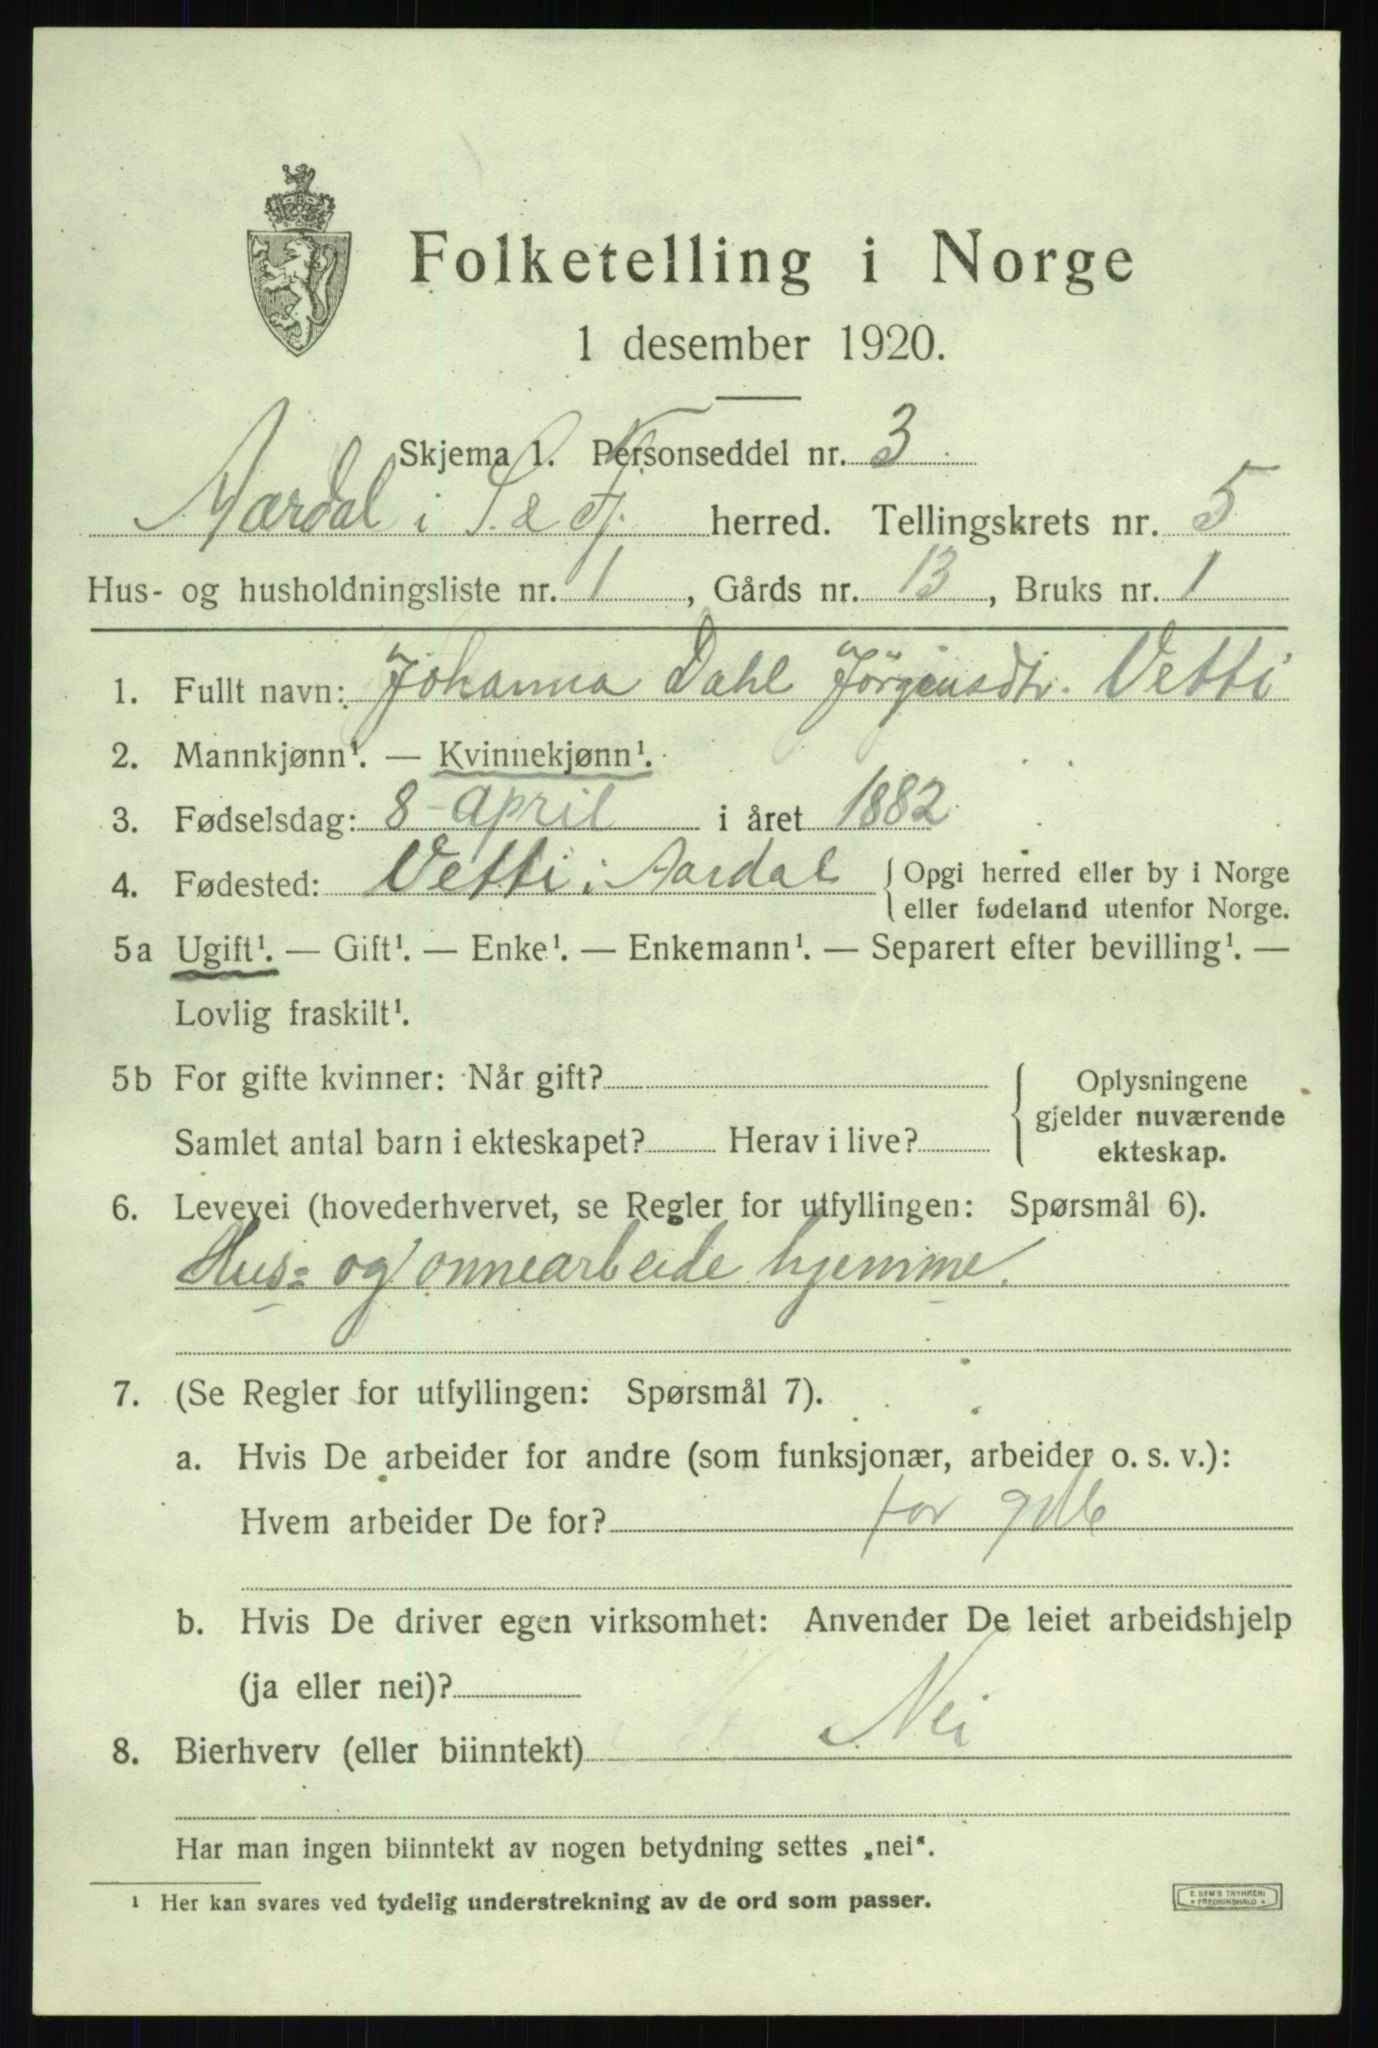 Folketelling i Norge
1 desember 1920.
Skjema 1. Personseddel nr. 3
Aardal i S. & Fj. herred. Tellingskrets nr. 5
Hus- og husholdningsliste nr. 1, Gårds nr. 13, Bruks nr. 1
1. Fullt navn: Johanna Dahl Jörgensdtr. Vetti
2. Mannkjønn¹. — Kvinnekjønn¹.
3. Fødselsdag: 8 - April i året 1882
4. Fødested: Vetti i Aardal { Opgi herred eller by i Norge
eller fødeland utenfor Norge.
5a Ugift¹. — Gift¹. — Enke¹. — Enkemann¹. — Separert efter bevilling¹. —
Lovlig fraskilt¹.
5b For gifte kvinner: Når gift?
Samlet antal barn i ekteskapet? Herav i live?
Oplysningene
gjelder nuværende
ekteskap.
6. Levevei (hovederhvervet, se Regler for utfyllingen: Spørsmål 6).
Hus= og onnearbeide hjemme.
7. (Se Regler for utfyllingen: Spørsmål 7).
a. Hvis De arbeider for andre (som funksjonær, arbeider o. s. v.):
Hvem arbeider De for? for
b. Hvis De driver egen virksomhet: Anvender De leiet arbeidshjelp
(ja eller nei)?
8. Bierhverv (eller biinntekt) Nei
Har man ingen biinntekt av nogen betydning settes „nei“.
¹ Her kan svares ved tydelig understrekning av de ord som passer.
E. SEM'S TRYKKERI
FREDRIKSHALD